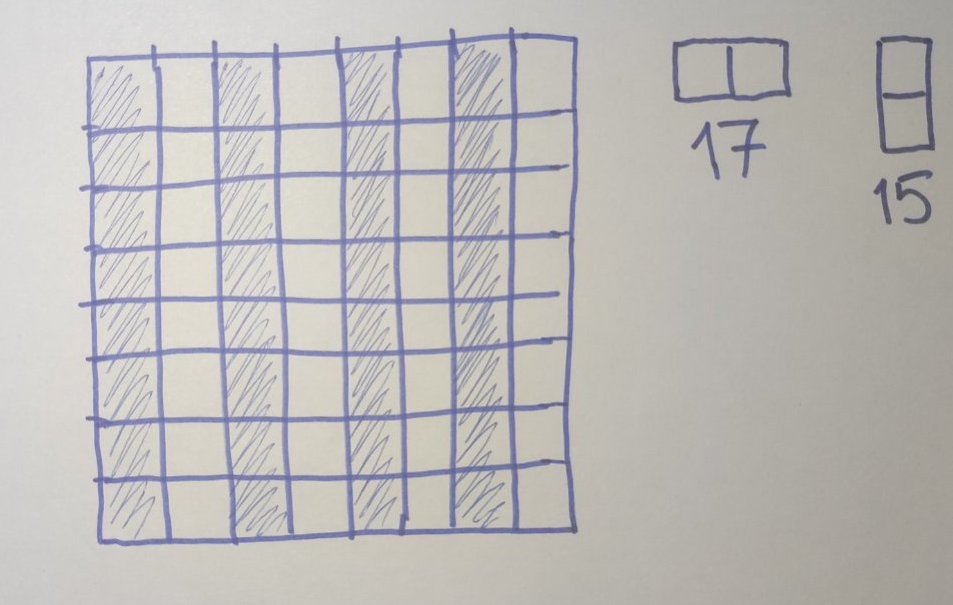 17
15